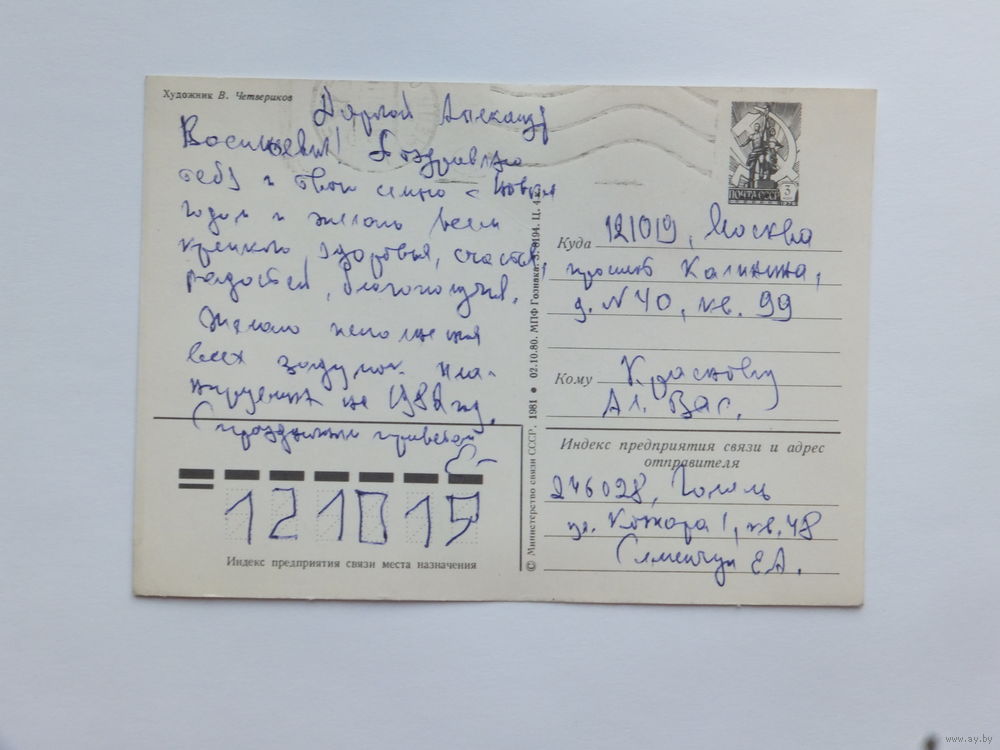 Художник В. Четвериков
Дорогой Александр
Васильевич! Поздравляю
тебя и твою семью с Новым
годом и желаю всем
крепкого здоровья, счастья,
радостей, благополучия.
Желаю исполнения
всех задумок, пла-
нируемых на 1982 год.
С праздничным приветом
ПОЧТА СССР 3
Куда 121019, Москва
проспект Калинина,
д. N 40, кв. 99
Кому Краснову
Ал. Вас.
Индекс предприятия связи и адрес
отправителя
246028, Гомель
ул. Кожара 1, кв. 48
Семенчук Е.А.
121019
Индекс предприятия связи места назначения
© Министерство связи СССР, 1981 ● 02.10.80. МПФ Гознака. З. 8194. Ц. 4 к.
www.ay.by